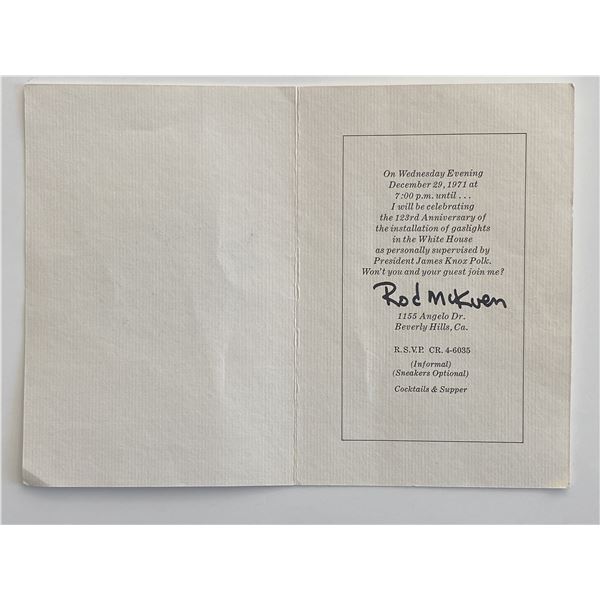 On Wednesday Evening
December 29, 1971 at
7:00 p.m. until . . .
I will be celebrating
the 123rd Anniversary of
the installation of gaslights
in the White House
as personally supervised by
President James Knox Polk.
Won't you and your guest join me?
Rod McKuen
1155 Angelo Dr.
Beverly Hills, Ca.
R.S.V.P. CR. 4-6035
(Informal)
(Sneakers Optional)
Cocktails & Supper